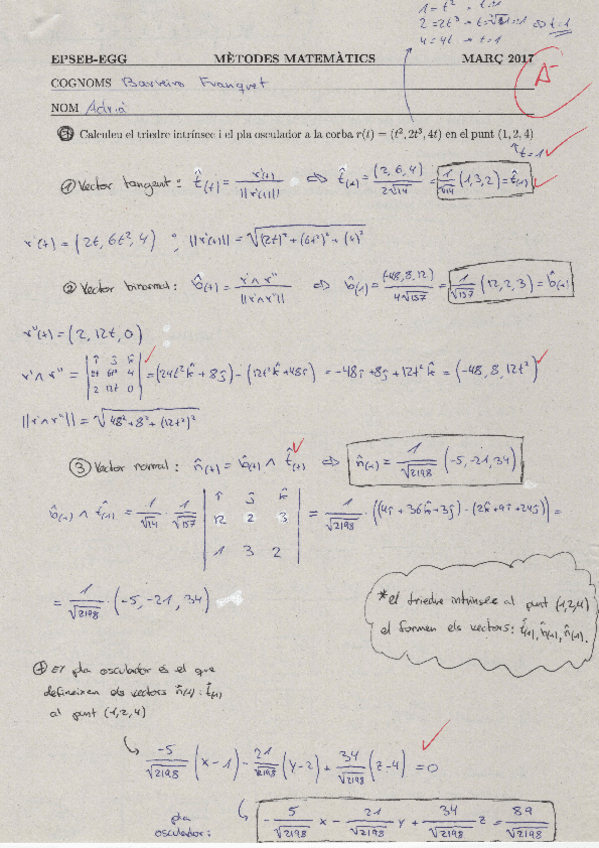 1 = t²
2 = 2t³ → t = ∛1 = 1 ⇔ t = 1
4 = 4t → t = 1
EPSEB-EGG MÈTODES MATEMÀTICS MARÇ 2017
COGNOMS Barreiro Franquet
NOM Adrià
A⁻
Calculeu el triedre intrínsec i el pla osculador a la corba r(t) = (t², 2t³, 4t) en el punt (1, 2, 4)
t=1
① Vector tangent: t̂(t) = r'(t) / ||r'(t)|| ⇒ t̂(1) = (2,6,4) / 2√14 = 1/√14 (1,3,2) = t̂(1)
r'(t) = (2t, 6t², 4) ; ||r'(t)|| = √((2t)² + (6t²)² + (4)²)
② Vector binormal: b̂(t) = r'∧r'' / ||r'∧r''|| ⇒ b̂(1) = (-48,8,12) / 4√157 = 1/√157 (12,2,3) = b̂(1)
r''(t) = (2, 12t, 0)
r'∧r'' = | î ĵ k̂ | 2t 6t² 4 | 2 12t 0 | = (24t²k̂ + 8ĵ) - (12t²k̂ + 48î) = -48î + 8ĵ + 12t²k̂ = (-48, 8, 12t²)
||r'∧r''|| = √(48² + 8² + (12t²)²)
③ Vector normal: n̂(t) = b̂(t) ∧ t̂(t) ⇒ n̂(1) = 1/√2198 (-5, -21, 34)
b̂(1) ∧ t̂(1) = 1/√14 · 1/√157 | î ĵ k̂ | 12 2 3 | 1 3 2 | = 1/√2198 · ((4î + 36k̂ + 3ĵ) - (2k̂ + 9î + 24ĵ)) =
= 1/√2198 · (-5, -21, 34)
*el triedre intrínsec al punt (1,2,4)
el formen els vectors: t̂(1), b̂(1), n̂(1).
④ El pla osculador és el que
defineixen els vectors n̂(1) i t̂(1)
al punt (1,2,4)
-5/√2198 (x-1) - 21/√2198 (y-2) + 34/√2198 (z-4) = 0
pla
osculador: -5/√2198 x - 21/√2198 y + 34/√2198 z = 89/√2198